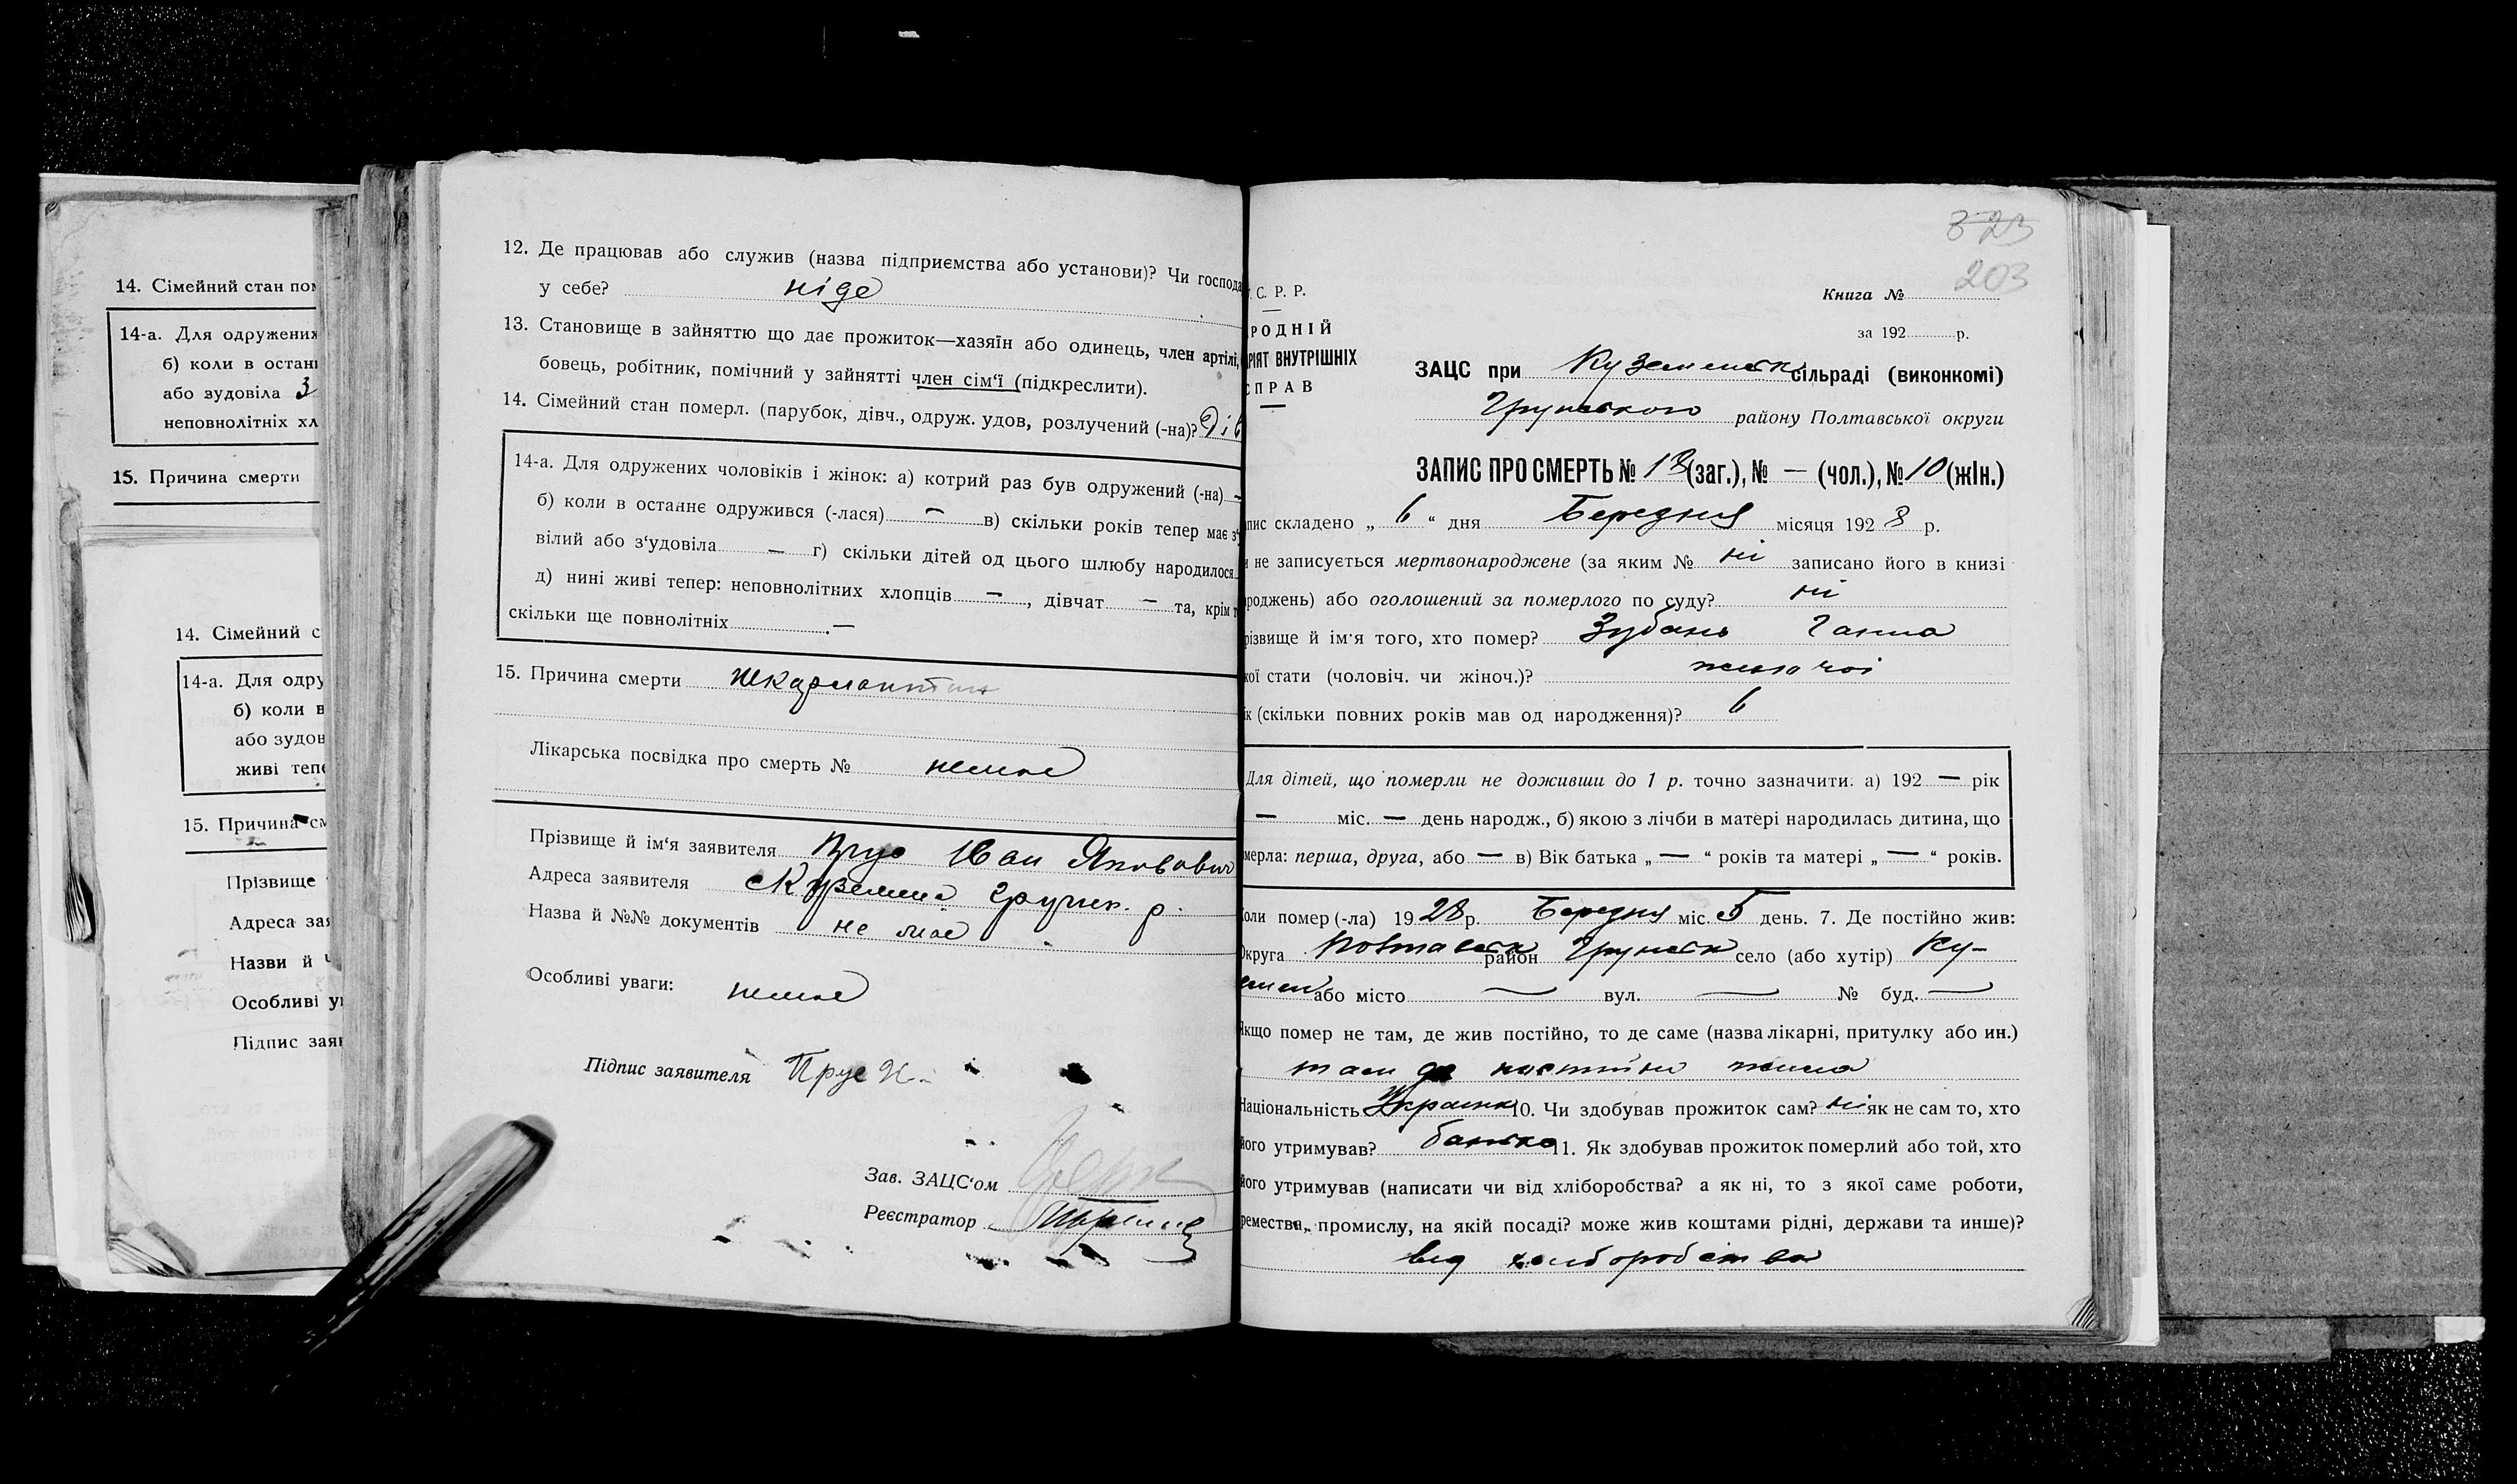 14. Сімейний стан пом
14-а. Для одружених
б) коли в останн
або зудовіла 3
неповнолітніх хл
15. Причина смерти
14. Сімейний с
14-а. Для одру
б) коли в
або зудов
живі тепе
15. Причина см
Прізвище
Адреса зая
Назви й
Особливі ув
Підпис заяв
12. Де працював або служив (назва підприємства або установи)? Чи господа
у себе? ніде
13. Становище в зайняттю що дає прожиток—хазяїн або одинець, член артілі,
бовець, робітник, помічний у зайнятті член сім'ї (підкреслити).
14. Сімейний стан померл. (парубок, дівч., одруж. удов, розлучений (-на)? Дів
14-а. Для одружених чоловіків і жінок: а) котрий раз був одружений (-на) —
б) коли в останнє одружився (-лася) — в) скільки років тепер має з'
вілий або з'удовіла — г) скільки дітей од цього шлюбу народилося
д) нині живі тепер: неповнолітних хлопців —, дівчат — та, крім т
скільки ще повнолітніх —
15. Причина смерти шкарлантина
Лікарська посвідка про смерть № немає
Прізвище й ім'я заявителя Прус Іван Яковович
Адреса заявителя с Куземен Грунск. р.
Назва й №№ документів не має
Особливі уваги: немає
Підпис заявителя Прус И.
Зав. ЗАЦС'ом
Реєстратор
323
203
. С. Р. Р.
РОДНІЙ
РІЯТ ВНУТРІШНІХ
СПРАВ
Книга №
за 192 р.
ЗАЦС при Куземенськ сільраді (виконкомі)
Грунського району Полтавської округи
ЗАПИС ПРО СМЕРТЬ № 13 (заг.), № — (чол.), № 10 (жін.)
пис складено „ 6 “ дня Березня місяця 192 8 р.
и не записується мертвонароджене (за яким № ні записано його в книзі
роджень) або оголошений за померлого по суду? ні
різвище й ім'я того, хто помер? Зубань Ганна
кої стати (чоловіч. чи жіноч.)? жіночої
ік (скільки повних років мав од народження)? 6
Для дітей, що померли не доживши до 1 р. точно зазначити: а) 192 — рік
— міс. — день народж., б) якою з лічби в матері народилась дитина, що
мерла: перша, друга, або — в) Вік батька „ — “ років та матері „ — “ років.
оли помер (-ла) 19 28 р. Березня міс. 5 день. 7. Де постійно жив:
Округа Повтавськ район Грунськ село (або хутір) Ку-
земен або місто — вул. — № буд. —
Якщо помер не там, де жив постійно, то де саме (назва лікарні, притулку або ин.)
там де постійно жила
Національність Україн 10. Чи здобував прожиток сам? ні як не сам то, хто
його утримував? батько 11. Як здобував прожиток померлий або той, хто
його утримував (написати чи від хліборобства? а як ні, то з якої саме роботи,
ремества, промислу, на якій посаді? може жив коштами рідні, держави та инше)?
від хліборобства